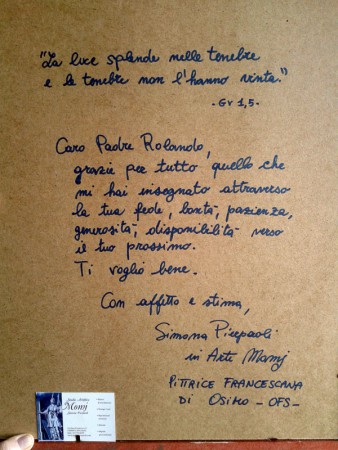 "La luce splende nelle tenebre
e le tenebre non l'hanno vinta."
- Gv 1,5 -
Caro Padre Rolando,
grazie per tutto quello che
mi hai insegnato attraverso
la tua fede, bontà, pazienza,
generosità, disponibilità verso
il tuo prossimo.
Ti voglio bene.
Con affetto e stima,
Simona Pierpaoli
in Arte Mamj
PITTRICE FRANCESCANA
DI OSIMO - OFS -